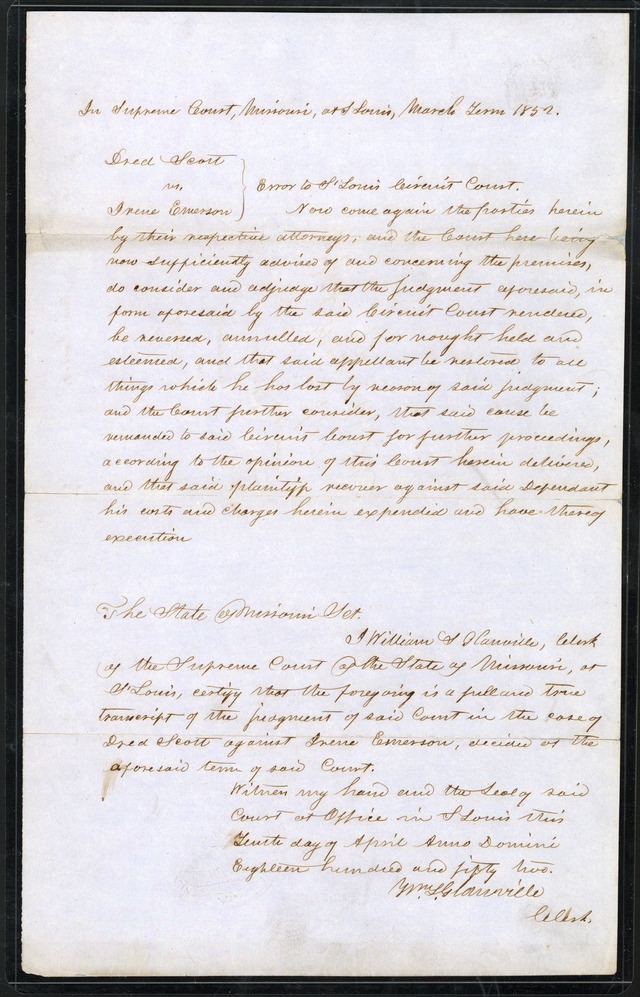 In Supreme Court, Missouri, at St Louis, March Term 1852.
Dred Scott
vs.
Irene Emerson
Error to St Louis Circuit Court.
Now come again the parties herein
by their respective attorneys, and the Court here being
now sufficiently advised of and concerning the premises,
do consider and adjudge that the judgment aforesaid, in
form aforesaid by the said Circuit Court rendered,
be reversed, annulled, and for nought held and
esteemed, and that said appellant be restored to all
things which he has lost by reason of said judgment;
and the Court further consider, that said cause be
remanded to said Circuit Court for further proceedings,
according to the opinion of this Court herein delivered,
and that said plaintiff recover against said Defendant
his costs and charges herein expended and have thereof
execution
The State of Missouri Sct.
I William S Glanville, Clerk
of the Supreme Court of the State of Missouri, at
St Louis, certify that the foregoing is a full and true
transcript of the judgment of said Court in the case of
Dred Scott against Irene Emerson, decided at the
aforesaid term of said Court.
Witness my hand and the Seal of said
Court at Office in St Louis this
Tenth day of April Anno Domini
Eighteen hundred and fifty two.
Wm S. Glanville
Clerk.